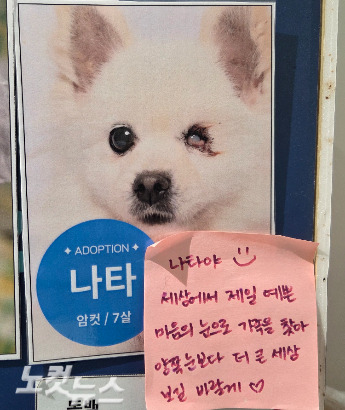 ✦ ADOPTION ✦
나타
암컷 / 7살
나타야 :)
세상에서 제일 예쁜
마음의 눈으로 가족을 찾다
양쪽눈보다 더 큰 세상
보일 바랄게 ♡
노컷뉴스